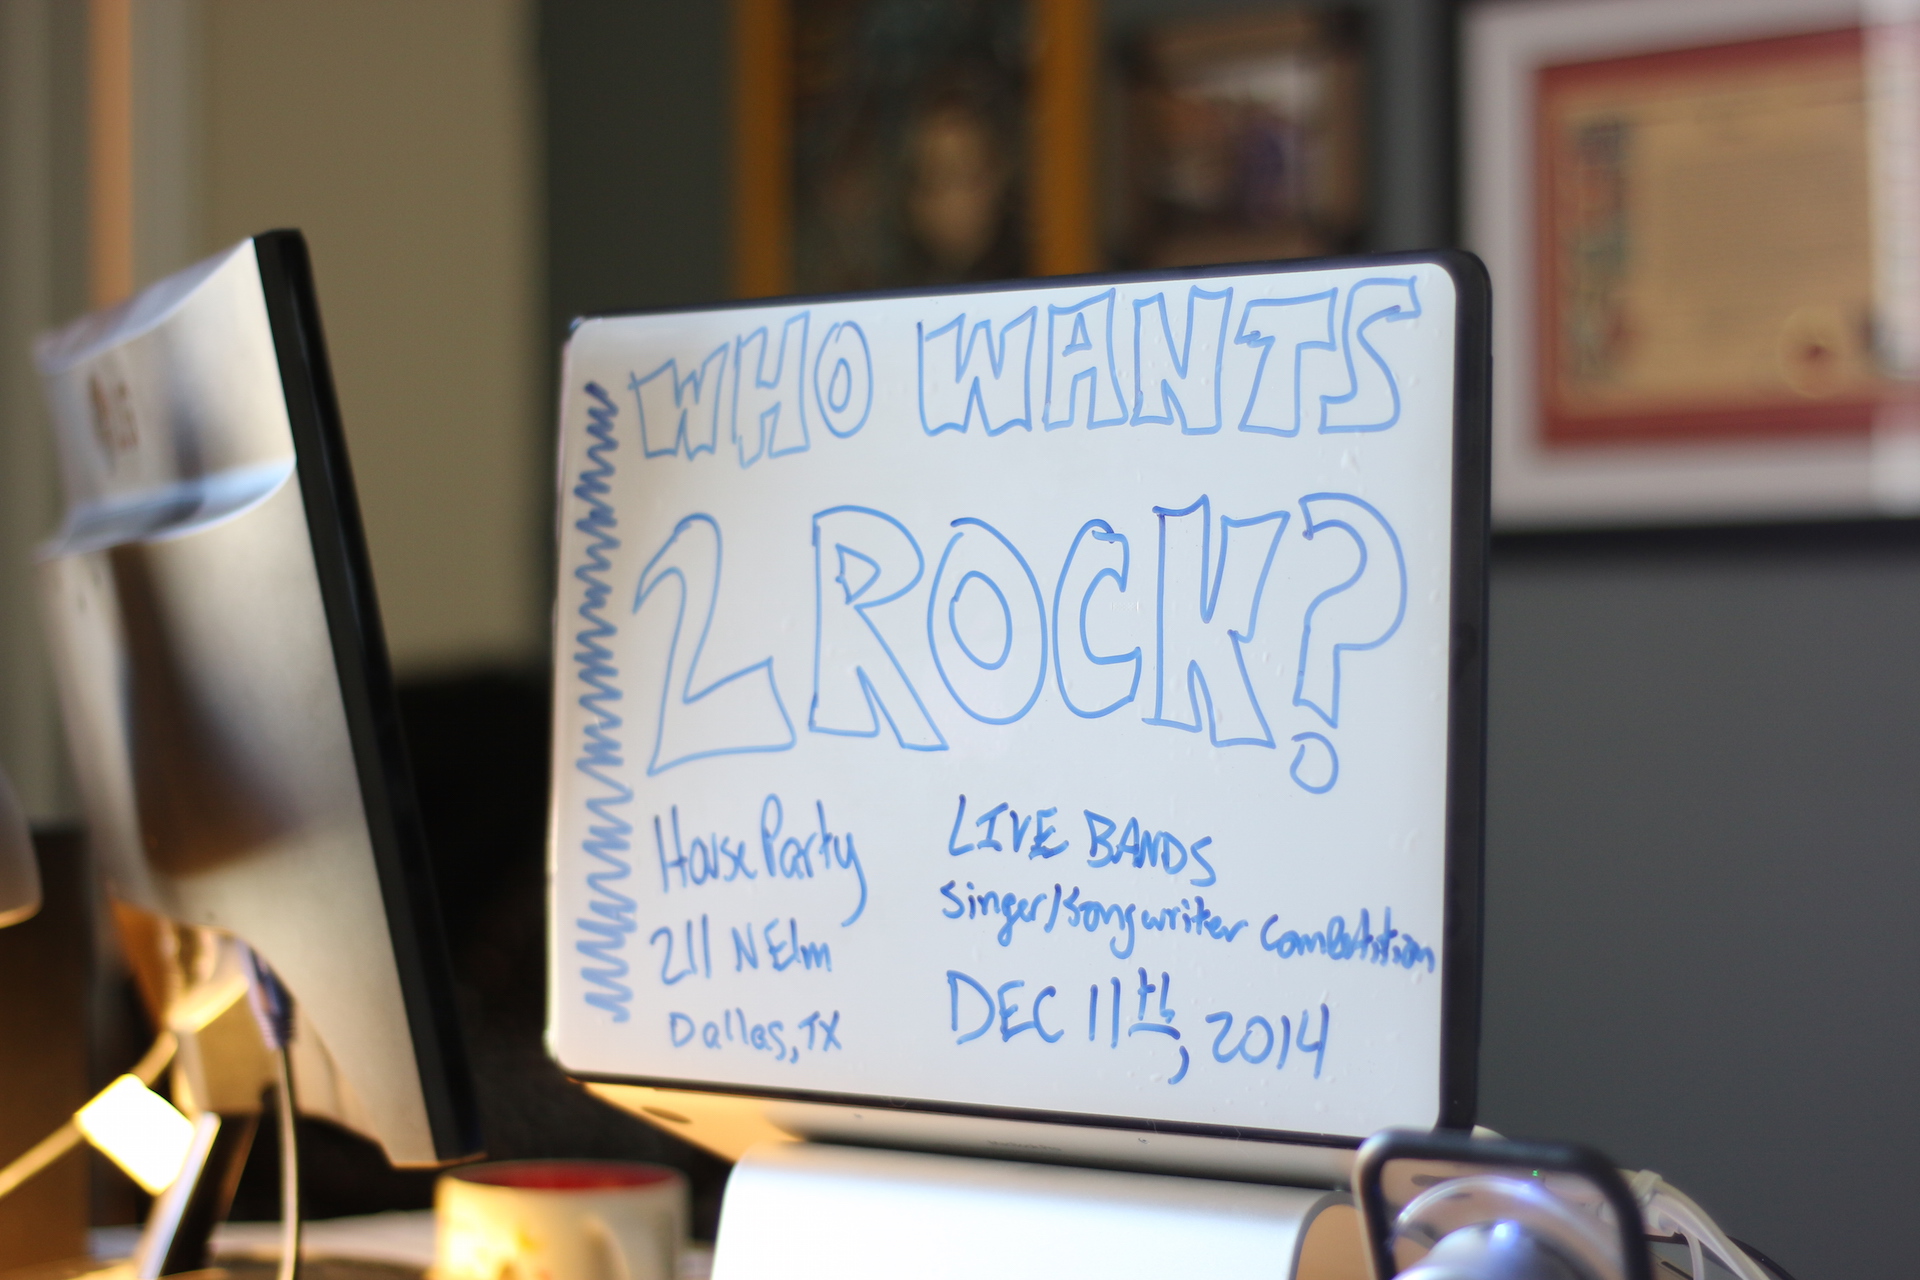 WHO WANTS
2 ROCK?
House Party
211 N Elm
Dallas, TX
LIVE BANDS
Singer/Songwriter Competition
DEC 11th, 2014